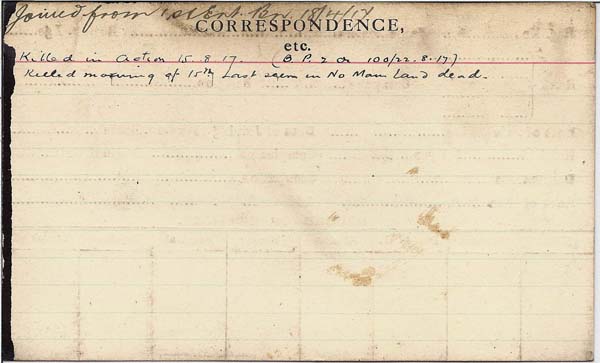 Joined from 1st Ent. Bn. 18/4/17
CORRESPONDENCE,
etc.
Killed in action 15.8.17. (B.P. 2 on 100/22.8.17)
Killed morning of 15th Last seen in No Man Land dead.